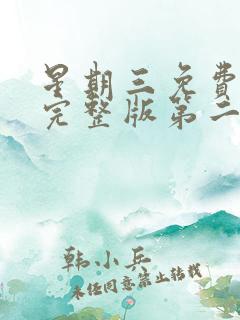 星期三免费
完整版第二
韩小兵
未经同意禁止转载